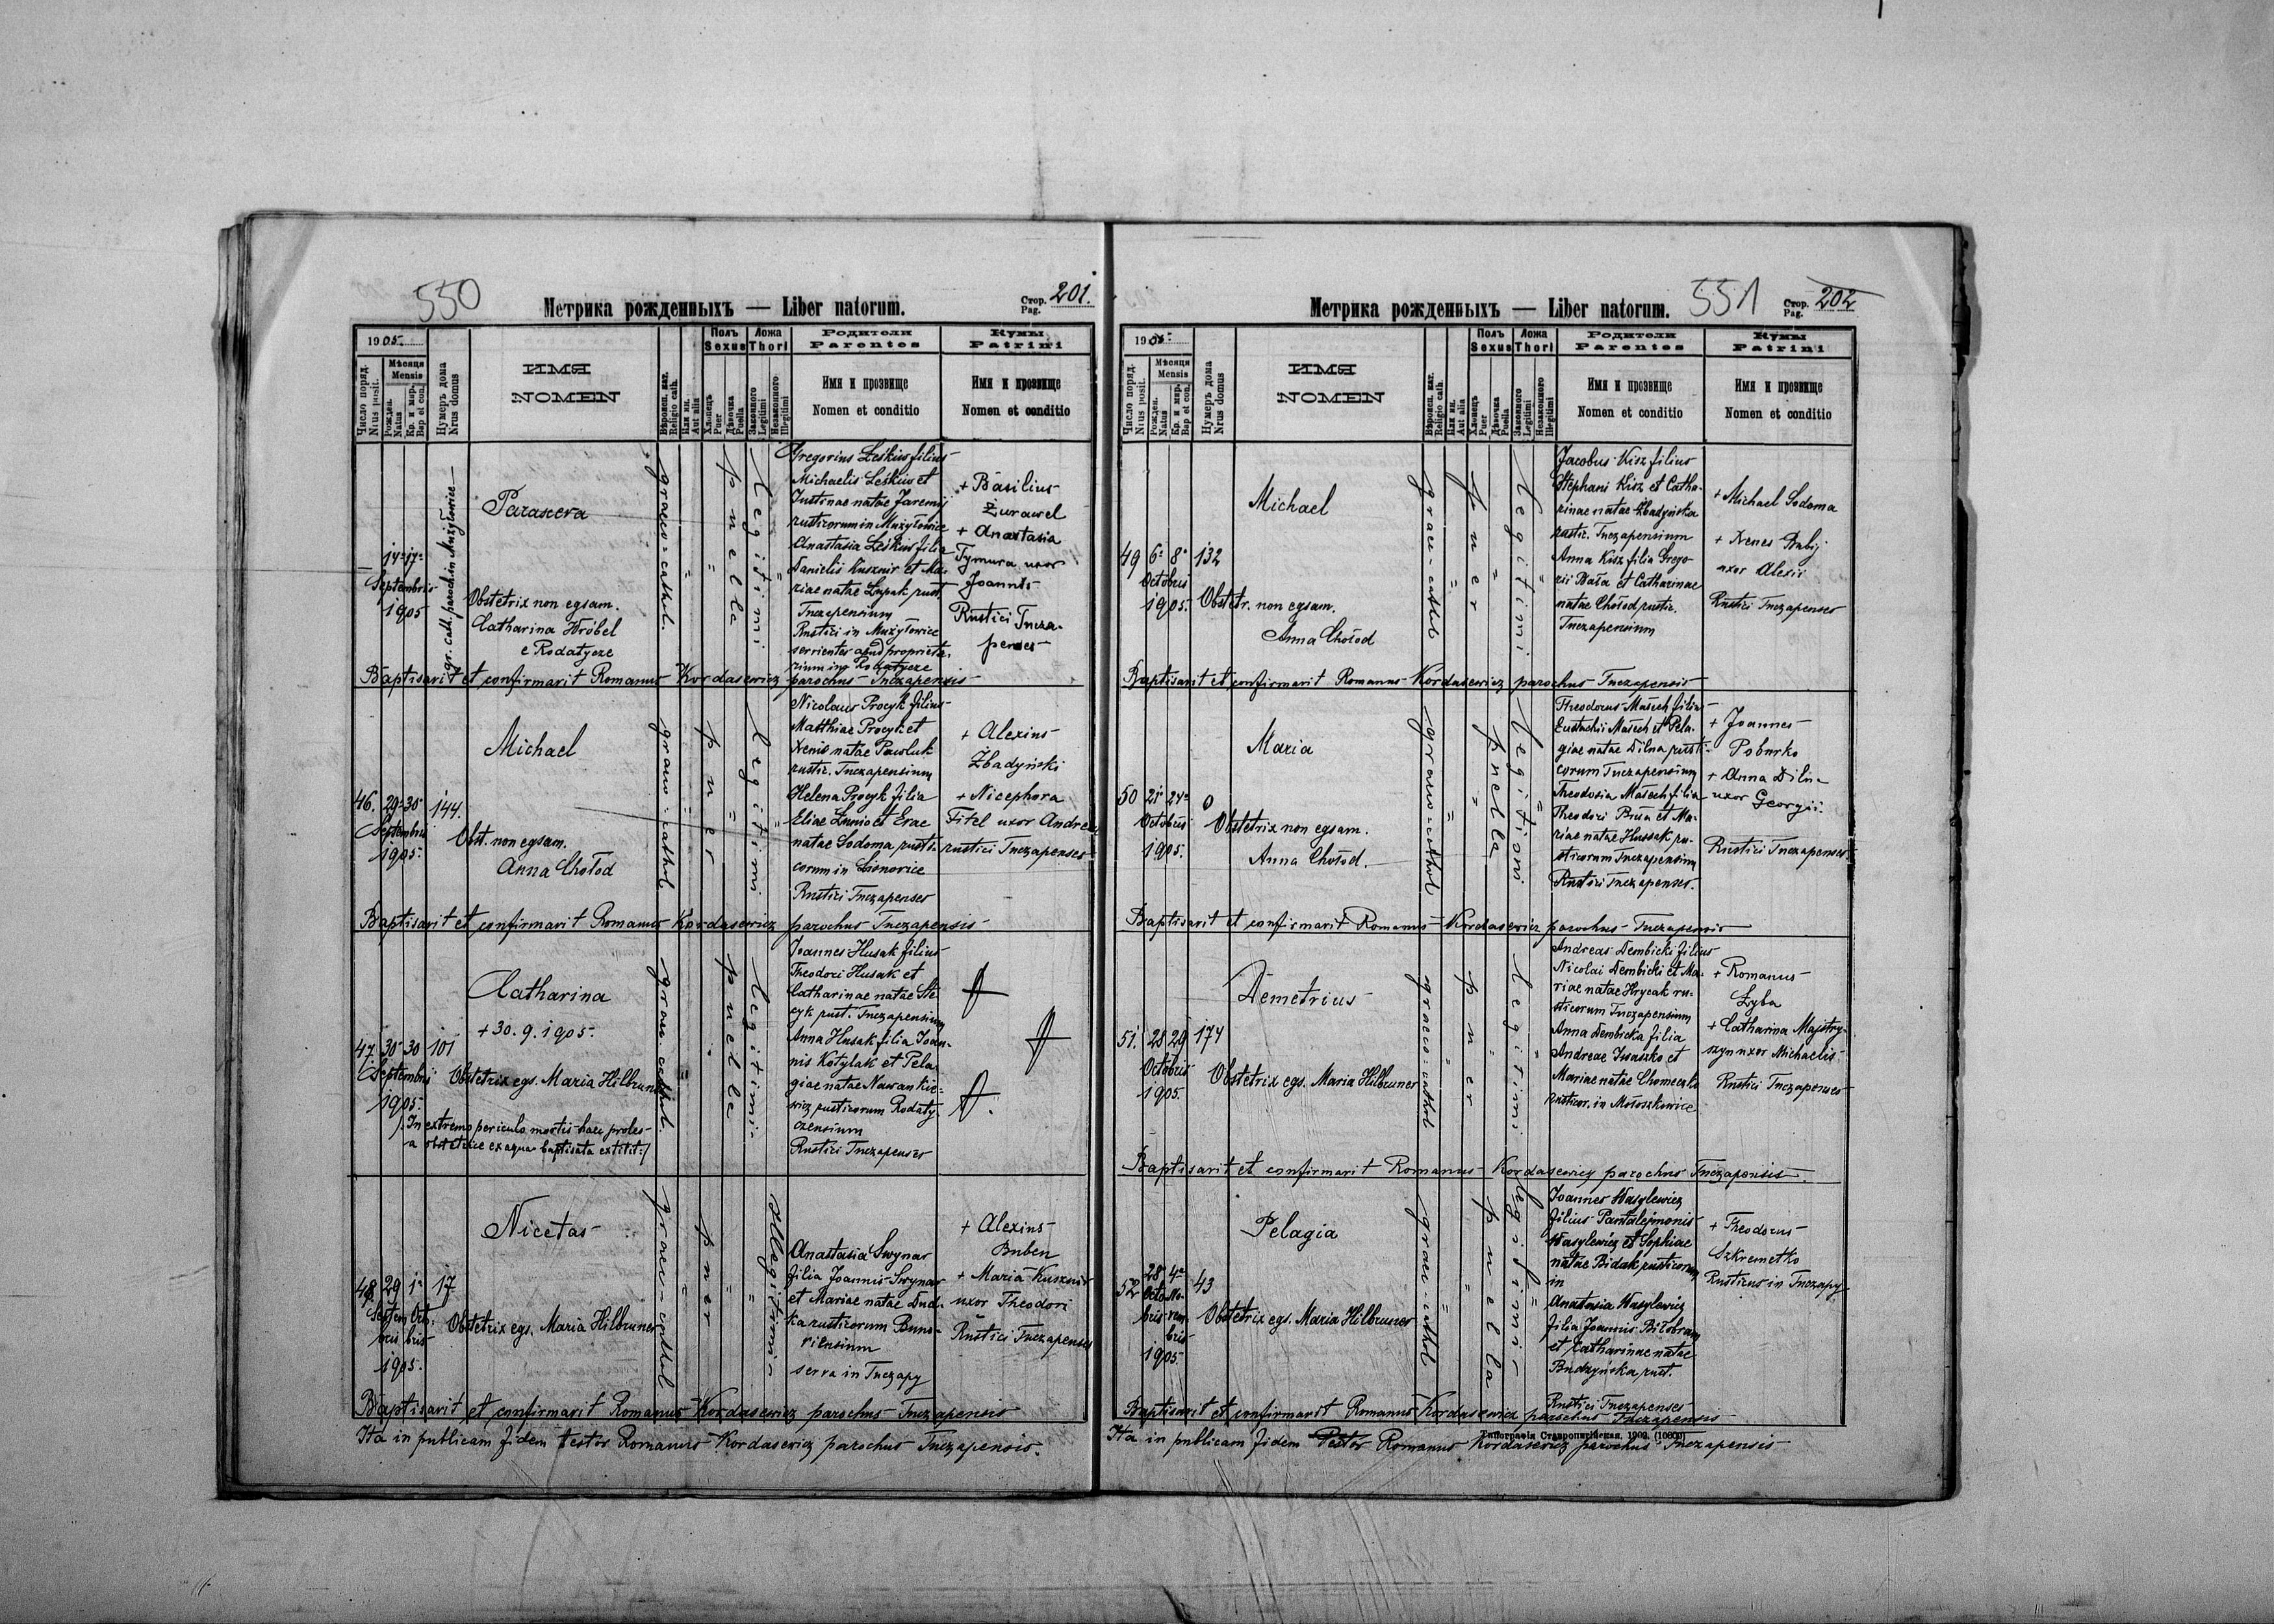 550
Метрика рожденныхъ — Liber natorum.
Стор. Pag. 201.
1905
Число поряд.
Nrus posit.
Мѣсяця
Mensis
Рожден.
Natus
Кр. и мир.
Bap et con.
Нумеръ дома
Nrus domus
ИМЯ
NOMEN
Вѣроисп. кат.
Religio cath.
Или ин.
Aut alia
Полъ
Sexus
Хлопець
Puer
Дѣвочка
Puella
Ложа
Thori
Законного
Legitimi
Незаконного
Illegitimi
Родители
Parentes
Имя и прозвище
Nomen et conditio
Кумы
Patrini
Имя и прозвище
Nomen et conditio
14 17
Septembris
1905
gr. cath. paroch. in Mużyłowice
Parasceva
Obstetrix non egsam.
Catharina Wróbel
e Rodatycze
graeco-cathol.
puella
legitimi
Gregorius Leśkiw filius
Michaelis Leśkiw et
Justinae natae Jaremij
rusticorum in Mużyłowice
Anastasia Leśkiw filia
Danielis Kusznir et Ma-
riae natae Łupak rust.
Tuczapensium
Rustici in Mużyłowice
servientes apud proprieta-
rium in Rodatycze
+ Basilius
Żurawel
+ Anastasia
Tymura uxor
Joannis
Rustici Tucza-
penses
Baptisavit et confirmavit Romanus Kordasewicz parochus Tuczapensis
46. 29 30 144.
Septembris
1905.
Michael
Obst. non egsam.
Anna Chołod
graeco-cathol
puer
legitimi
Nicolaus Procyk filius
Matthiae Procyk et
Xeniae natae Pawluk
rustic. Tuczapensium
Helena Procyk filia
Eliae Łunio et Evae
natae Sodoma rusti-
corum in
Rustici Tuczapenses
+ Alexius
Żbadyński
+ Nicephora
Fitel uxor Andreae
rustici Tuczapenses
Baptisavit et confirmavit Romanus Kordasewicz parochus Tuczapensis
47. 30 30 101
Septembris
1905.
Catharina
+ 30. 9. 1905.
Obstetrix egs. Maria Hilbruner
/: In extremo periculo mortis haec proles
a obstetrice ex aqua baptisata extitit :/
graeco cathol.
puella
legitimi
Joannes Husak filius
Theodori Husak et
Catharinae natae Ste-
cyk rust. Tuczapensium
Anna Husak filia Joan-
nis Kotylak et Pela-
giae natae Nawarkie-
wicz rusticorum Rodaty-
czensium
Rustici Tuczapenses
48. 29 1 17
Septem Octo
bris bris
1905.
Nicetas
Obstetrix egs. Maria Hilbruner
graeco-cathol
puer
illegitimi
Anastasia Swynar
filia Joannis Swynar
et Mariae natae Dud-
ka rusticorum Buno-
viensium
serva in Tuczapy
+ Alexius
Buben
+ Maria Kusznir
uxor Theodori
Rustici Tuczapenses
Baptisavit et confirmavit Romanus Kordasewicz parochus Tuczapensis
Ita in publicam fidem testor Romanus Kordasewicz parochus Tuczapensis.
Метрика рожденныхъ — Liber natorum.
551
Стор. Pag. 202
1905
Число поряд.
Nrus posit.
Мѣсяця
Mensis
Рожден.
Natus
Кр. и мир.
Bap et con.
Нумеръ дома
Nrus domus
ИМЯ
NOMEN
Вѣроисп. кат.
Religio cath.
Или ин.
Aut alia
Полъ
Sexus
Хлопець
Puer
Дѣвочка
Puella
Ложа
Thori
Законного
Legitimi
Незаконного
Illegitimi
Родители
Parentes
Имя и прозвище
Nomen et conditio
Кумы
Patrini
Имя и прозвище
Nomen et conditio
49 6 8 132
Octobris
1905.
Michael
Obstetr. non egsam.
Anna Chołod
graeco-cathol
puer
legitimi
Jacobus Kisz filius
Stephani Kisz et Catha-
rinae natae Żbadyńska
rustic. Tuczapensium
Anna Kisz filia Grego-
rii Bała et Catharinae
natae Chołod rustic.
Tuczapensium
+ Michael Sodoma
+ Xenes Babij
uxor Alexii
Rustici Tuczapenses
Baptisavit et confirmavit Romanus Kordasewicz parochus Tuczapensis
50 21 24 0
Octobris
1905.
Maria
Obstetrix non egsam.
Anna Chołod.
graeco-cathol
puella
legitimi
Theodorus Małech filius
Eustachii Małech et Pela-
giae natae Dilna rusti-
corum Tuczapensium
Theodosia Małech filia
Theodori et Ma-
riae natae Hussak ru-
sticorum Tuczapensium
Rustici Tuczapenses.
+ Joannes
Poburko
+ Anna Dilna
uxor Georgii.
Rustici Tuczapenses
Baptisavit et confirmavit Romanus Kordasewicz parochus Tuczapensis
51. 28 29 174
Octobris
1905.
Demetrius
Obstetrix egs. Maria Hilbruner
graeco-cathol
puer
legitimi
Andreas Dembicki filius
Nicolai Dembicki et Ma-
riae natae Hrycak ru-
sticorum Tuczapensium
Anna Dembicka filia
Andreae Iwaszko et
Mariae natae Chomeczko
rusticor. in Mołoszkowice
+ Romanus
Zyba
+ Catharina Majstry-
szyn uxor Michaelis
Rustici Tuczapenses
Baptisavit et confirmavit Romanus Kordasewicz parochus Tuczapensis
52 28 4 43
Octo No-
bris vem
bris
1905.
Pelagia
Obstetrix egs. Maria Hilbruner
graeco-cathol
puella
legitimi
Joannes Wasylewicz
filius Pantalejmonis
Wasylewicz et Sophiae
natae Bidak rusticorum
in
Anastasia Wasylewicz
filia Joannis Biłobram
et Catharinae natae
Budzyńska rust.
Rustici Tuczapenses
+ Theodorus
Szkremetko
Rusticus in Tuczapy
Baptisavit et confirmavit Romanus Kordasewicz parochus Tuczapensis
Типографія Ставропигійская. 1902. (10800)
Ita in publicam fidem testor Romanus Kordasewicz parochus Tuczapensis